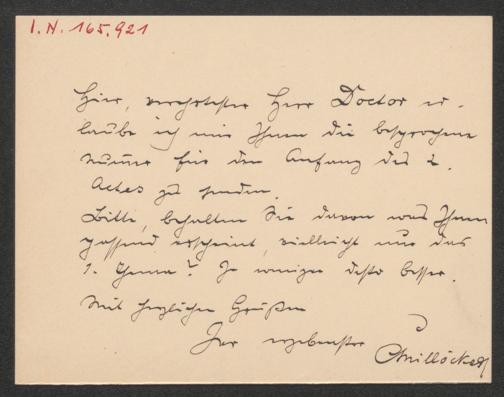 I.N. 165.921
Hier, verehrtester Herr Doctor er-
laube ich mir Ihnen die besprochene
Numer für den Anfang des 2.
Actes zu senden.
Bitte, behalten Sie davon was Ihnen
passend erscheint, vielleicht nur das
1. Thema? Je weniger desto besser.
Mit herzlichen Grüßen
Ihr ergebenster
CMillöcker